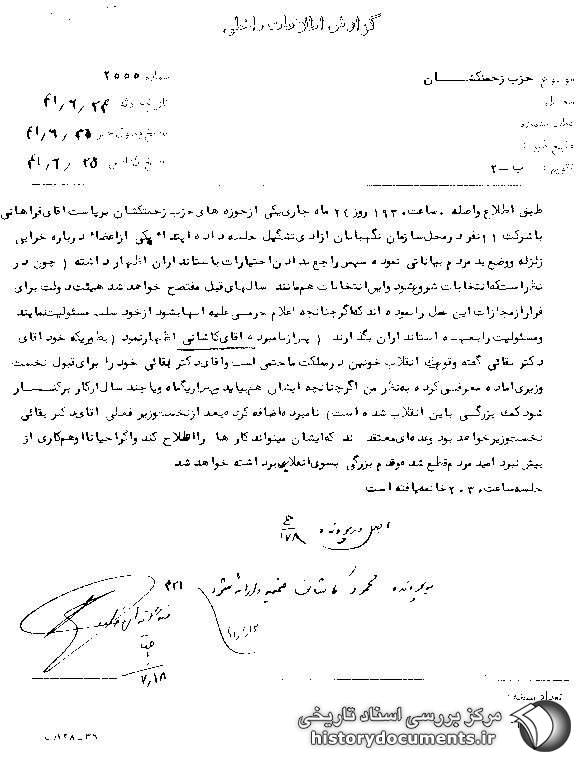 گزارش اطلاعات داخلی
موضوع: حزب زحمتکشان
شماره ۲۵۵۵
تاریخ ۴۱/۶/۲۴
۴۱/۶/۲۵
۴۱/۶/۲۵
تقویم: ب-۲
طبق اطلاع واصله ساعت ۱۹۳۰ روز ۲۴ ماه جاری یکی از حوزه های حزب زحمتکشان بریاست آقای فراهانی
با شرکت ۱۱ نفر در محل سازمان نگهبانان آزادی تشکیل جلسه داده ابتدا یکی از اعضا درباره خرابی
زلزله و وضع بد مردم بیاناتی نموده سپس راجع بدادن اختیارات باستانداران اظهار داشته ( چون در
نظر است که انتخابات شروع شود و این انتخابات هم مانند سالهای قبل مفتضح خواهد شد هیئت دولت برای
فرار از مجازات این عمل را نموده اند که اگر چنانچه اعلام جرمی علیه آنها بشود از خود سلب مسئولیت نمایند
و مسئولیت را بعهده استانداران بگذارند ) پس از نامبرده آقای کاشانی اظهار نمود ( بطوریکه خود آقای
دکتر بقائی گفته وقوع یک انقلاب خونین در مملکت ما حتمی است و آقای دکتر بقائی خود را برای قبول نخست
وزیری آماده معرفی کرده بنظر من اگر چنانچه ایشان هم بیاید سر از یکماه و یا چند سال از کار برکنار
شود کمک بزرگی باین انقلاب شده است ) نامبرده اضافه کرد بعد از نخست وزیر فعلی آقای دکتر بقائی
نخست وزیر خواهد بود وعده ای معتقدند که ایشان میتواند کارها را اصلاح کند و اگر احیانا او هم کاری از
پیش نبرد امید مردم قطع شده و قدم بزرگی بسوی انقلاب برداشته خواهد شد
جلسه ساعت ۲۰۳۰ خاتمه یافته است
اصل در پرونده
۱۷۸
در پرونده محمود کاشانی ضمیمه و ارائه شود
۳۲۱
۷/۱۸
تعداد نسخه
۱۲۸-۳۶
مرکز بررسی اسناد تاریخی
historydocuments.ir